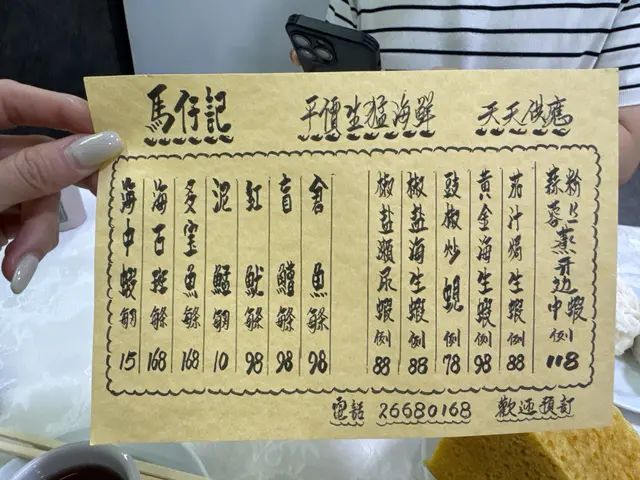 馬仔記 平價生猛海鮮 天天供應
粉絲蒜蓉蒸開边中蝦 例 118
茄汁焗生蝦 例 88
黄金海生蝦 例 98
豉椒炒蜆 例 78
椒盐海生蝦 例 88
椒盐瀨尿蝦 例 88
倉魚 每條 98
盲鰽 每條 98
紅魷 每條 98
泥鯭 每両 10
多宝魚 每條 168
海百班 每條 168
海中蝦 每両 15
電話 26680168 歡迎預訂